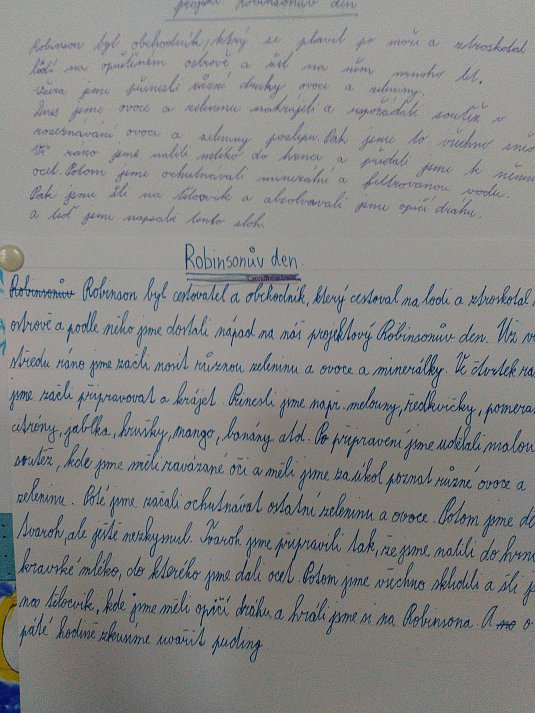 projekt Robinsonův den
Robinson byl obchodník, který se plavil po moři a ztroskotal
lodí na opuštěném ostrově a žil na něm mnoho let.
Včera jsme přinesli různé druhy ovoce a zeleniny.
Dnes jsme ovoce a zeleninu nakrájeli a uspořádali soutěž v
rozeznávání ovoce a zeleniny poslepu. Pak jsme to všechno
Už ráno jsme nalili mléko do hrnce a přidali jsme k němu
ocet. Potom jsme ochutnávali minerální a filtrovanou vodu.
Pak jsme šli na tělocvik a absolvovali jsme opičí dráhu.
a teď jsme napsali tento sloh.
Robinsonův den
Robinsonův Robinson byl cestovatel a obchodník, který cestoval na lodi a ztroskotal
ostrově a podle něho jsme dostali nápad na náš projektový Robinsonův den. Už v
středu ráno jsme začli nosit různou zeleninu a ovoce a minerálky. Ve čtvrtek
jsme začli připravovat a krájet. Přinesli jsme např. melouny, ředkvičky,
citróny, jablka, hrušky, mango, banány atd. Po připravení jsme udělali malou
soutěž, kde jsme měli zavázané oči a měli jsme za úkol poznat různé ovoce a
zeleninu. Poté jsme začali ochutnávat ostatní zeleninu a ovoce. Potom jsme
tvaroh, ale ještě nezkysnul. Tvaroh jsme připravili tak, že jsme nalili do
kravské mléko, do kterého jsme dali ocet. Potom jsme všechno sklidili a šli
na tělocvik, kde jsme měli opičí dráhu a hráli jsme si na Robinsona. A o
páté hodině zkusíme uvařit puding